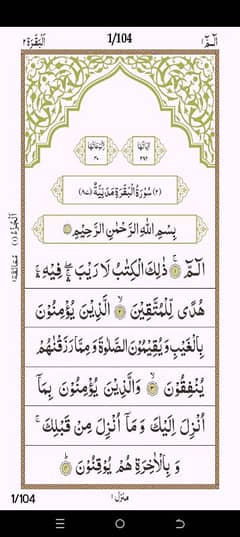 الٓمّٓ 1/104 اَلْبَقَرَة ٢
اٰیَاتُهَا ٢٨٦ رُکُوْعَاتُهَا ٤٠
(٢) سُوْرَةُ الْبَقَرَةِ مَدَنِیَّةٌ (٨٧)
بِسْمِ اللّٰهِ الرَّحْمٰنِ الرَّحِیْمِ
الٓمّٓ ۚ ذٰلِكَ الْكِتٰبُ لَا رَیْبَ ۛ فِیْهِ ۛ
هُدًی لِّلْمُتَّقِیْنَ ۙ الَّذِیْنَ یُؤْمِنُوْنَ
بِالْغَیْبِ وَیُقِیْمُوْنَ الصَّلٰوةَ وَمِمَّا رَزَقْنٰهُمْ
یُنْفِقُوْنَ ۙ وَالَّذِیْنَ یُؤْمِنُوْنَ بِمَاۤ
اُنْزِلَ اِلَیْكَ وَمَاۤ اُنْزِلَ مِنْ قَبْلِكَ ۚ
وَ بِالْاٰخِرَةِ هُمْ یُوْقِنُوْنَ
1/104 منزل ١